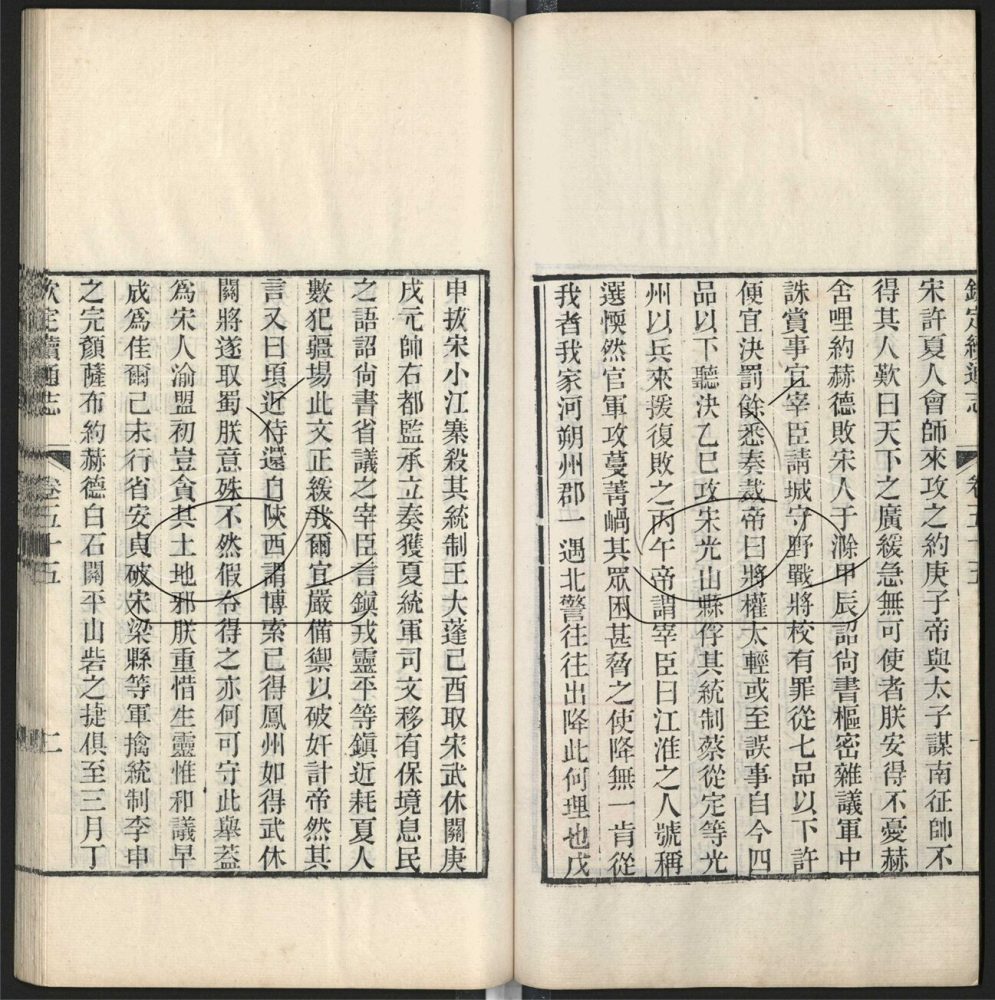 欽定續通志 卷五十五 一
宋許夏人會師來攻之約庚子帝與太子謀南征帥不
得其人歎曰天下之廣緩急無可使者朕安得不憂赫
舍哩約赫德敗宋人于滁甲辰詔尙書樞密雜議軍中
誅賞事宜宰臣請城守野戰將校有罪從七品以下許
便宜決罰餘悉奏裁帝曰將權太輕或至誤事自今四
品以下聽決乙巳攻宋光山縣俘其統制蔡從定等光
州以兵來援復敗之丙午帝謂宰臣曰江淮之人號稱
選愞然官軍攻蔓菁崓其眾困甚脅之使降無一肯從
我者我家河朔州郡一遇北警往往出降此何理也戊
申拔宋小江寨殺其統制王大蓬己酉取宋武休關庚
戌元帥右都監承立奏獲夏統軍司文移有保境息民
之語詔尙書省議之宰臣言鎮戎靈平等鎮近耗夏人
數犯疆場此文正緩我爾宜嚴備禦以破奸計帝然其
言又曰頃近侍還自陝西謂博索已得鳳州如得武休
關將遂取蜀朕意殊不然假令得之亦何可守此舉葢
爲宋人渝盟初豈貪其土地邪朕重惜生靈惟和議早
成爲佳爾己未行省安貞破宋梁縣等軍擒統制李申
之完顏薩布約赫德白石關平山砦之捷俱至三月丁
欽定續通志 卷五十五 二